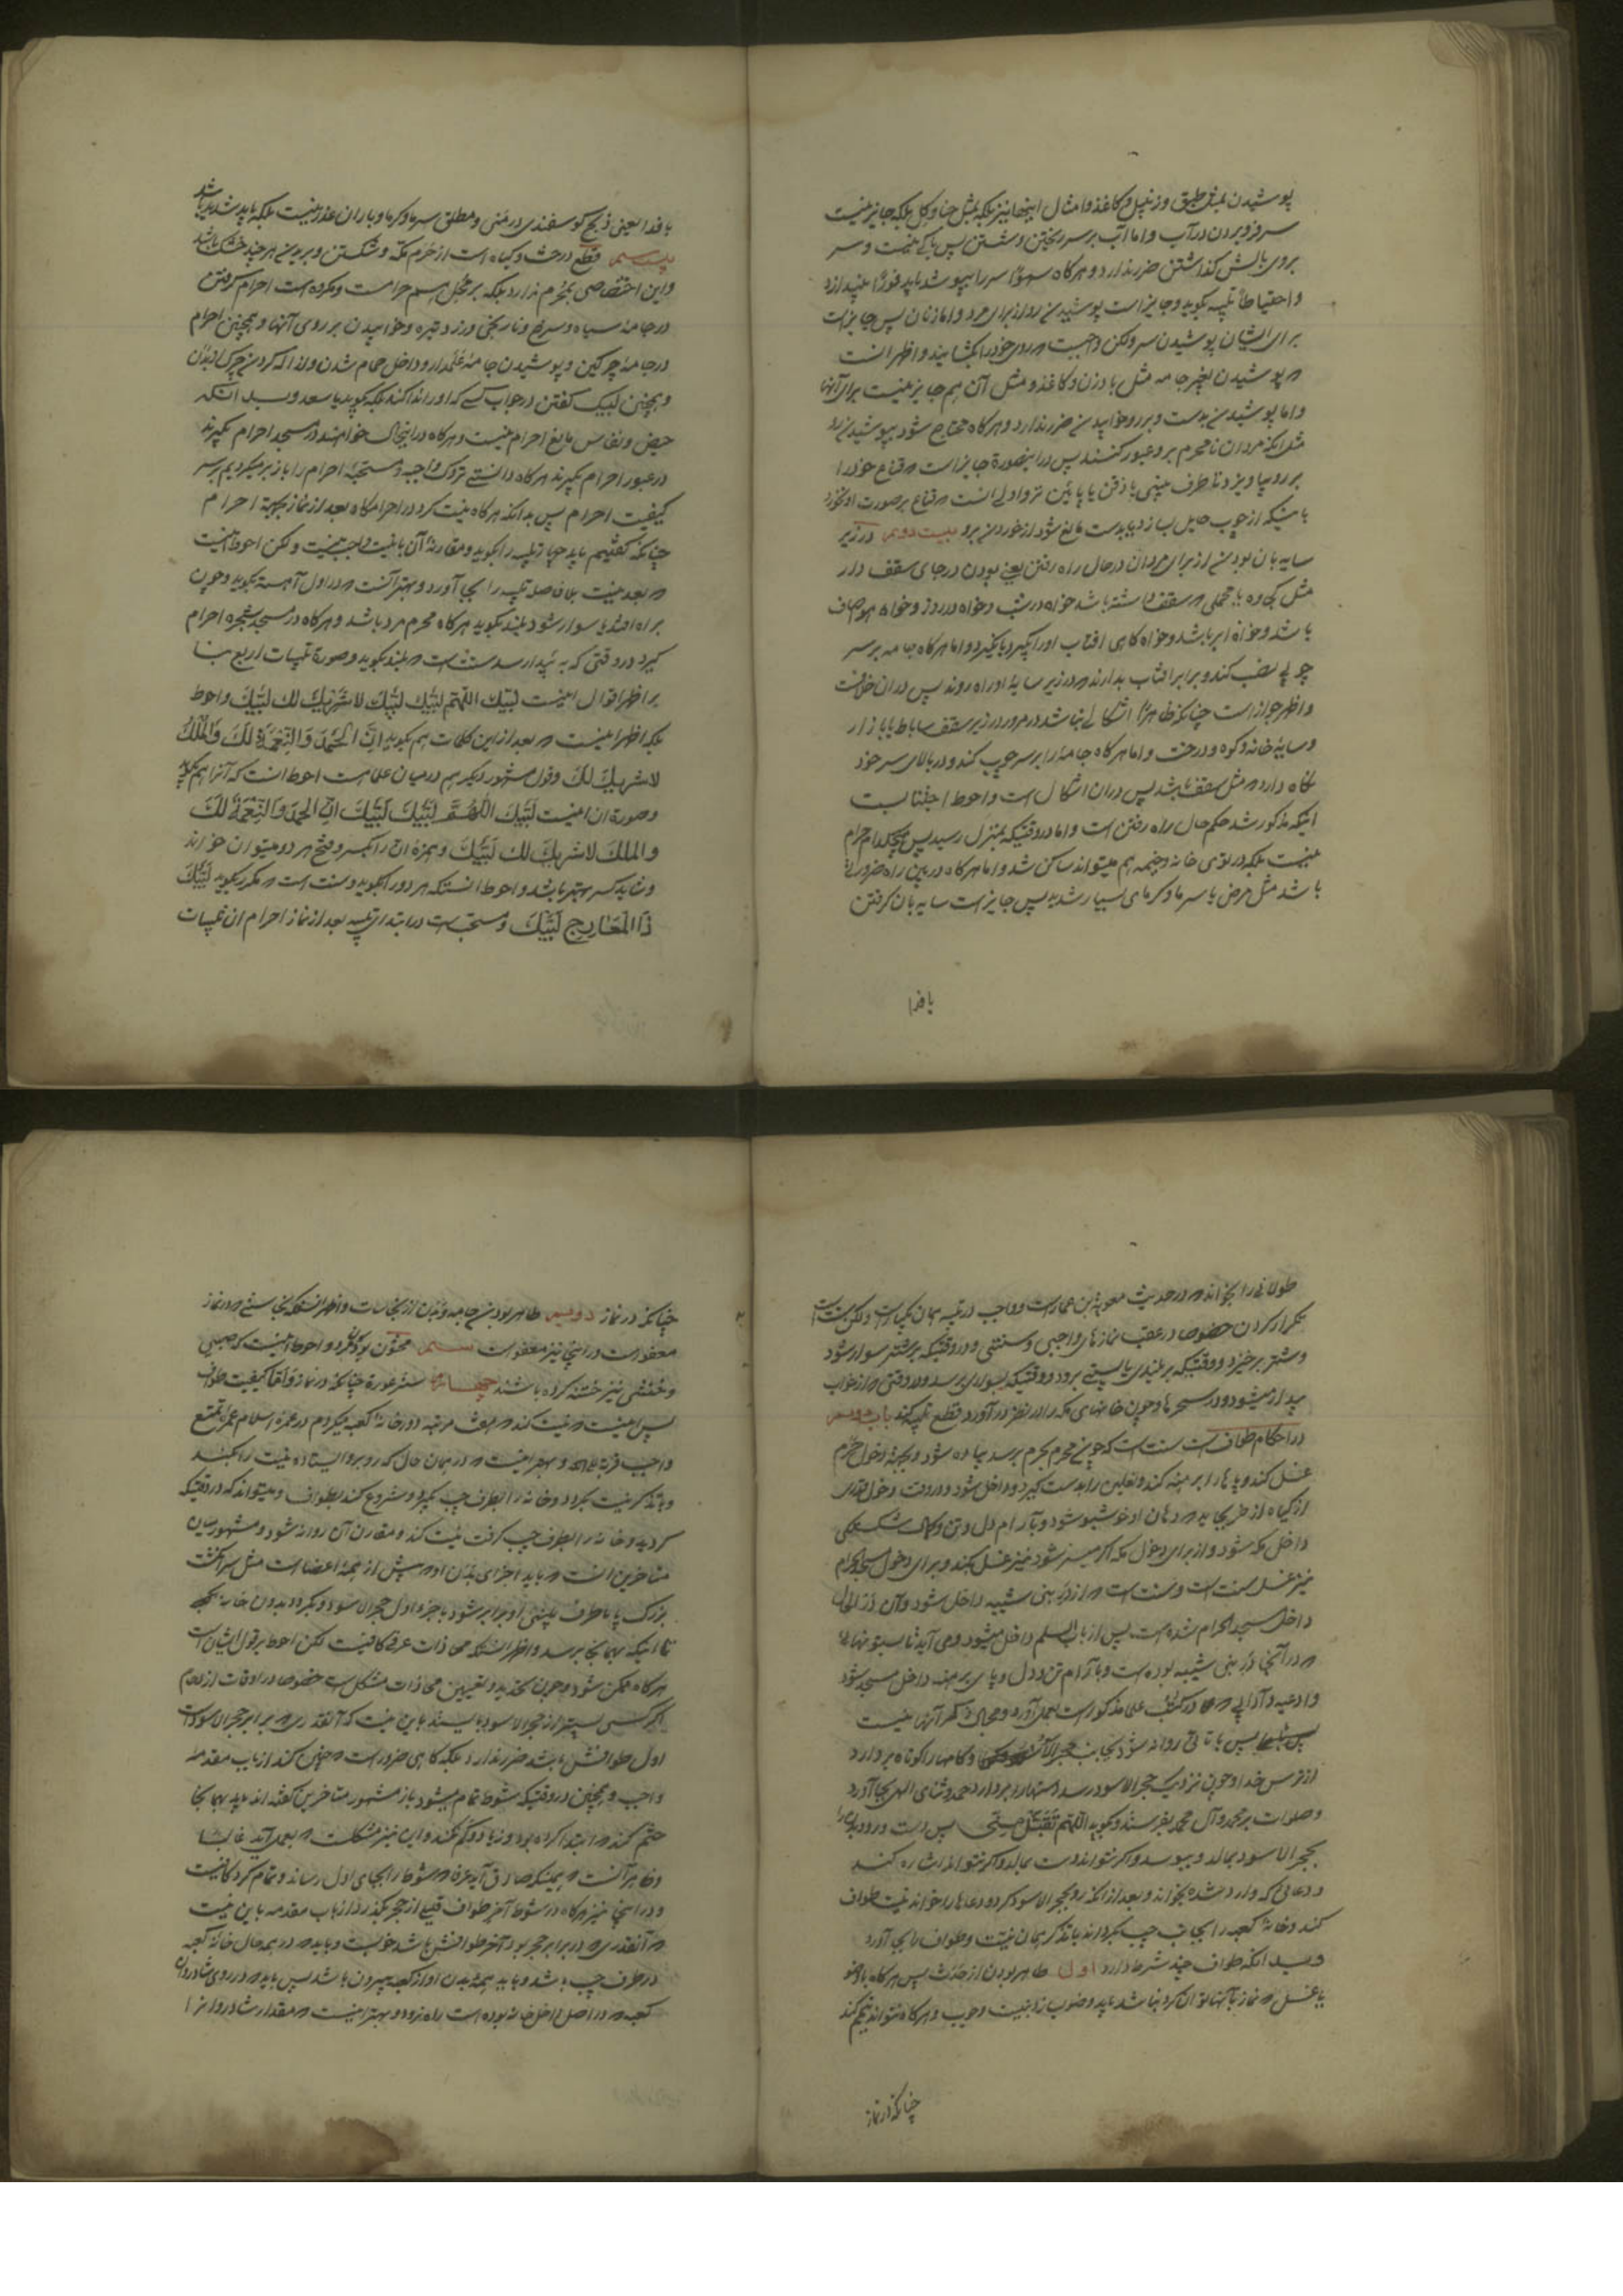 پوشیدن بمثل طبق و زنبیل و کاغذ و امثال اینها نیز بلکه بمثل حنا و گل بلکه جایز نیست
سر فرو بردن در آب و اما آب بر سر ریختن و شستن پس باکی نیست و سر
بروی بالش گذاشتن ضرر ندارد و هرگاه سهوًا سر را بپوشد باید فورًا بیندازد
و احتیاطًا تلبیه بگوید و جایز است پوشیدن رو از برای مرد و اما زنان پس جایز است
برای ایشان پوشیدن سر ولکن واجبست که روی خود را بگشایند و اظهر آنست
که پوشیدن بغیر جامه مثل بادزن و کاغذ و مثل آن هم جایز نیست برای آنها
و اما پوشیدن بدست و بر رو خوابیدن ضرر ندارد و هرگاه محتاج شود بپوشیدن رو
مثل اینکه مردان نامحرم برو عبور کنند پس در اینصورة جایز است که قناع خود را
بر رو بیاویزد تا طرف بینی یا ذقن یا پائین تر و اولی آنست که قناع بر صورت او نخورد
باینکه از چوب حایل بسازد یا بدست مانع شود از خوردن برو بیست دویم در زیر
سایه بان بودن از برای مردان در حال راه رفتن یعنی بودن در جای سقف دار
مثل کجاوه یا محملی که سقف داشته باشد خواه در شب و خواه در روز و خواه هوا صاف
باشد و خواه ابر باشد و خواه گاهی افتاب او را بگیرد یا نگیرد و اما هرگاه جامه بر سر
چوبی نصب کند و برابر افتاب بدارند که در زیر سایهٔ او راه روند پس در ان خلافست
و اظهر جواز است چنانکه ظاهرًا اشکالی نباشد در مرور در زیر سقف ساباط یا بازار
و سایهٔ خانه و کوه و درخت و اما هرگاه جامه را بر سر چوب کند و در بالای سر خود
نگاه دارد که مثل سقف باشد پس در ان اشکال است و احوط اجتنابست
اینکه مذکور شد حکم حال راه رفتن است و اما در وقتیکه بمنزل رسید پس هیچکدام حرام
نیست بلکه در توی خانه و خیمه هم میتواند ساکن شد و اما هرگاه در بین راه ضرورتی
باشد مثل مرض یا سرما و گرمای بسیار شدید پس جایز است سایه بان گرفتن
با فدا
با فدا یعنی ذبح گوسفندی در منی و مطلق سرما و گرما و باران عذر نیست بلکه باید شدید باشد
بیست سیم قطع درخت و گیاه است از حرم مکه و شکستن و بریدن هر چند خشک باشد
و این اختصاصی بمحرم ندارد بلکه بر محل هم حرامست و مکروه است احرام گرفتن
در جامهٔ سیاه و سرخ و نارنجی و زرد و تیره و خوابیدن بر روی آنها و همچنین احرام
در جامهٔ چرکین و پوشیدن جامهٔ علمدار و داخل حمام شدن و ازاله کردن چرک از بدن
و همچنین لبیک گفتن در جواب کسی که او را ندا کند بلکه بگوید یا سعد و بدانکه
حیض و نفاس مانع احرام نیست و هرگاه در اینحال خواهند در مسجد احرام بگیرند
در عبور احرام بگیرند هرگاه دانستی تروک واجبه و مستحبهٔ احرام را باز بر میگردیم بر سر
کیفیت احرام پس بدانکه هرگاه نیت کرد در احرامگاه بعد از نماز بجهة احرام
چنانکه گفتیم باید چهار تلبیه را بگوید و مقارنهٔ آن با نیت واجب نیست و لکن احوط اینست
که بعد نیت بلافاصله تلبیه را بجا آورد و بهتر آنست که در اول آهسته بگوید و چون
براه افتد یا سوار شود بلند بگوید هرگاه محرم مرد باشد و هرگاه در مسجد شجره احرام
گیرد در وقتی که به بیدا رسد سنت است که بلند بگوید و صورة تلبیات اربع بنا
بر اظهر اقوال اینست لبیک اللهم لبیک لبیک لا شریک لک لبیک و احوط
بلکه اظهر اینست که بعد از این کلمات هم بگوید اِنَّ الْحَمْدَ وَالنِّعْمَةَ لَكَ وَالْمُلْكُ
لا شریک لک و قول مشهور دیگر هم در میان علما هست احوط انست که آنرا هم بگوید
و صورة ان اینست لَبَّيْكَ اللّٰهُمَّ لَبَّيْكَ لَبَّيْكَ اِنَّ الحمدَ وَالنِّعْمَةَ لَكَ
وَالملكَ لا شَرِيكَ لَكَ لَبَّيْكَ و همزه انّ را بکسر و فتح هر دو میتوان خواند
و شاید کسر بهتر باشد و احوط انستکه هر دو را بگوید و سنت است که مکرر بگوید لَبَّيْكَ
ذَا الْمَعَارِجِ لَبَّيْكَ و مستحب است در ابتدای تلبیه بعد از نماز احرام ان تلبیات
طولانی را بخواند که در حدیث معویة بن عمار است و واجب در تلبیه همان یکبار است ولکن سنت است
تکرار کردن خصوصا در عقب نمازهای واجبی و سنتی و در وقتیکه بر شتر سوار شود
و شتر برخیزد و وقتیکه بر بلندی یا پستی برود و وقتیکه بسواری برسد و در وقتی که از خواب
بیدار میشود و در سحرها و چون خانهای مکه را در نظر در آورد قطع تلبیه کند باب دویم
در احکام طواف است سنت است که چون محرم بحرم برسد پیاده شود و بجهة دخول حرم
غسل کند و پاها را برهنه کند و نعلین را بدست گیرد و داخل شود و در وقت دخول قدری
از گیاه اذخر بخاید که دهان او خوشبو شود و بآرام دل و تن و کمال شکستگی
داخل مکه شود و از برای دخول مکه اگر میسر شود نیز غسل بکند و برای دخول مسجد الحرام
نیز غسل سنت است و سنت است که از در بنی شیبه داخل شود و آن در الحال
داخل مسجد الحرام شده است پس از باب السلم داخل میشود و می آید تا ستونهائی
که در آنجا در بنی شیبه بوده است و بآرام تن و دل و پای برهنه داخل مسجد شود
و ادعیه و آدابی که در کتب علما مذکور است بعمل آورد و مجال ذکر آنها نیست
پس با تانی روانه شود بجانب حجر الاسود و گامها را کوتاه بردارد
از ترس خدا و چون نزدیک حجر الاسود رسد دستها را بردارد حمد و ثنای الهی بجا آورد
و صلوات بر محمد و آل محمد بفرستد و بگوید اللهم تَقَبَّلْ مِنّی پس دست و رو و بدن را
بحجر الاسود بمالد و ببوسد و اگر نتواند دست بمالد و اگر نتواند اشاره کند
و دعائی که وارد شده بخواند و بعد از آنکه رو بحجر الاسود کرد و دعاها را خواند نیت طواف
کند و خانهٔ کعبه را بجانب چپ بگرداند با تذکر همان نیت و طواف را بجا آورد
و بدانکه طواف چند شرط دارد اول طاهر بودن از حدث پس هرگاه با وضو
یا غسل که نماز با آنها توان کرد نباشد باید وضو بسازد به نیت وجوب و هرگاه نتواند تیمم کند
چنانکه در نماز
چنانکه در نماز دویم طاهر بودن جامه و بدن از نجاسات و اظهر انستکه نجاستی که در نماز
معفو است در اینجا نیز معفو است سیم مختون بودن مرد و احوط اینست که صبی
و خنثی نیز ختنه کرده باشند چهارم ستر عورة چنانکه در نماز و اما کیفیت طواف
پس اینست که نیت کند که هفت مرتبه دور خانهٔ کعبه میگردم در عمره اسلام عمره تمتع
واجب قربة الی الله و بهتر اینست که در همان حال که رو برو ایستاده نیت را بکند
و با تذکر نیت بگردد و خانه را بطرف چپ بگیرد و شروع کند بطواف و میتواند که در وقتیکه
گردید و خانه را بطرف چپ گرفت نیت کند و مقارن آن روانه شود و مشهور میان
متاخرین انست که باید اجزای بدن او که پیش از همهٔ اعضا است مثل سر انگشت
بزرگ پا یا طرف بینی او برابر شود با جزو اول حجر الاسود و بگردد بدون خانهٔ کعبه
تا اینکه بهمانجا برسد و اظهر انستکه محاذات عرفی کافیست لکن احوط بر قول ایشان است
هرگاه ممکن شود و چون تحدید و تعیین محاذات مشکل است خصوصا در اوقات ازدحام
اگر کسی پیشتر از حجر الاسود بایستد باین نیت که آنقدری که برابر حجر الاسود است
اول طوافش باشد ضرر ندارد بلکه گاهی ضرور است که چنین کند از باب مقدمهٔ
واجب و همچنین در وقتیکه شوط تمام میشود باز مشهور متاخرین گفته اند باید بهمانجا
ختم کند که ابتدا کرده بود و زیاد و کم نکند و این نیز مشکلست که بعمل آید غالبا
و ظاهر آنست که همینکه صادق آید عرفا که شوط را بجای اول رساند و تمام کرد کافیست
و در اینجا نیز هرگاه در شوط آخر طواف قلیلی از حجر بگذرد از باب مقدمه باین نیت
که آنقدری که در برابر حجر بود آخر طوافش باشد خوبست و باید که در همه حال خانهٔ کعبه
در طرف چپ باشد و باید همهٔ بدن او از کعبه بیرون باشد پس باید که در روی شادروان
کعبه که در اصل داخل خانه بوده است راه نرود و بهتر اینست که مقدار شادروان را